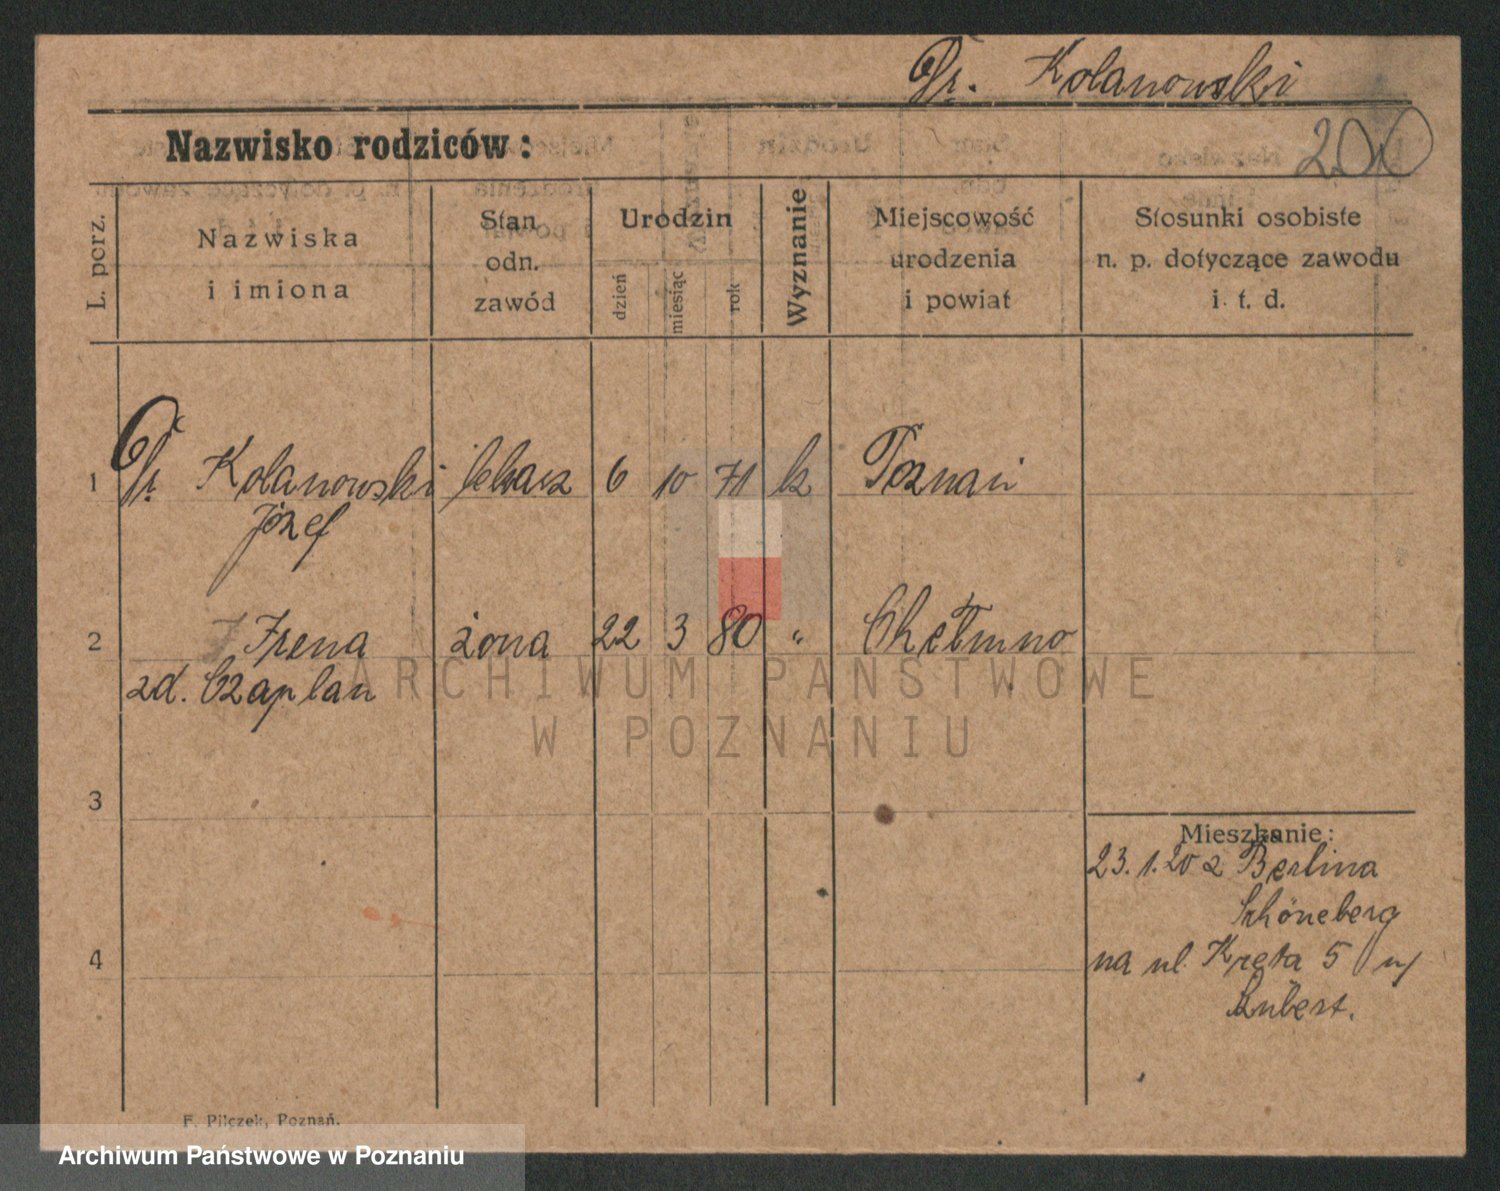 Dr. Kolanowski
200
Nazwisko rodziców:
L. porz.
Nazwiska
i imiona
Stan
odn.
zawód
Urodzin
dzień
miesiąc
rok
Wyznanie
Miejscowość
urodzenia
i powiat
Stosunki osobiste
n. p. dotyczące zawodu
i. t. d.
1 Dr. Kolanowski lekarz 6 10 71 k Poznań
Józef
2 Irena żona 22 3 80 " Chełmno
zd. Czaplan
3
4
Mieszkanie:
23.1.20 z Berlina
Schöneberg
na ul. Kręta 5 u/
F. Pilczek, Poznań.
ARCHIWUM PAŃSTWOWE
W POZNANIU
Archiwum Państwowe w Poznaniu